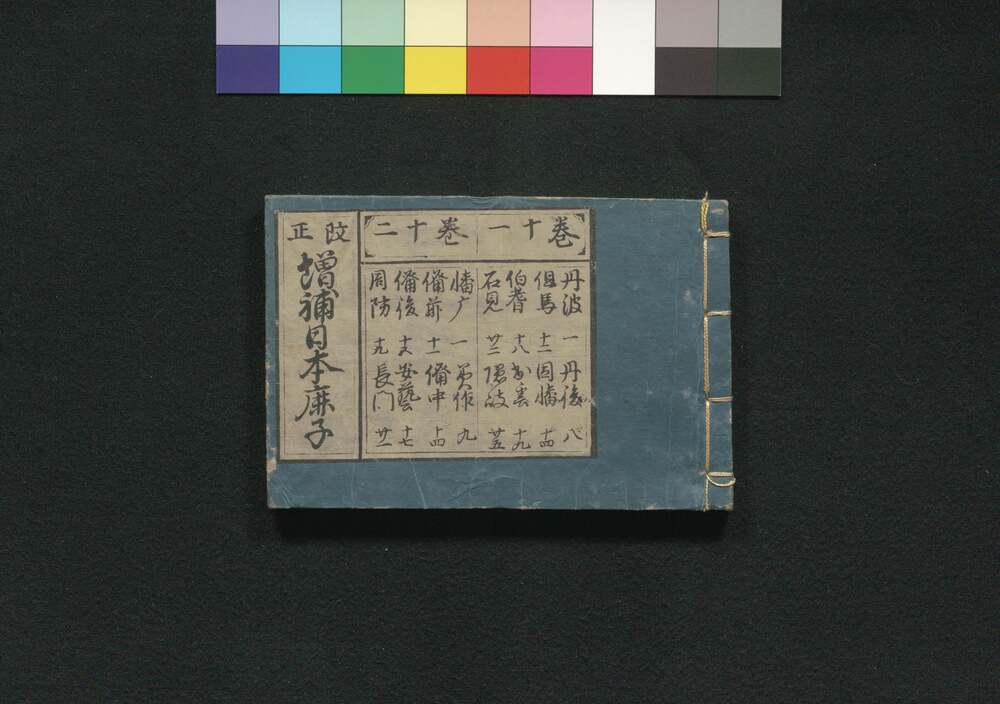 巻十一
丹波 一 丹後 八
但馬 十一 因幡 十四
伯耆 十八 出雲 十九
石見 廿二 隠岐 廿五
巻十二
幡广 一 美作 九
備前 十一 備中 十四
備後 十六 安藝 十七
周防 十九 長门 廿一
攺正
増補日本鹿子